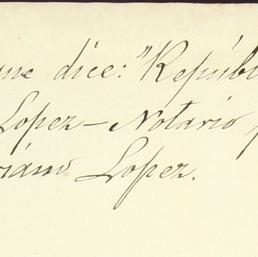 que dice: "Repúbl
Lopez—Notario p
riano Lopez.